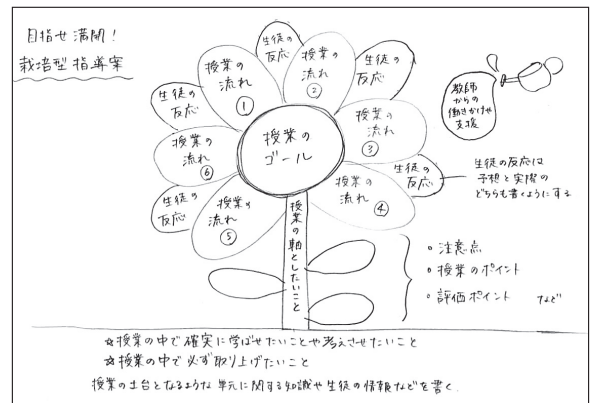 目指せ満開!
栽培型指導案
生徒の
反応
授業の
流れ
①
授業の
流れ
②
生徒の
反応
生徒の
反応
授業の
流れ
③
授業の
ゴール
授業の
流れ
⑥
生徒の
反応
授業の
流れ
④
生徒の
反応
授業の
流れ
⑤
授業の軸としたいこと
教師
からの
働きかけや
支援
生徒の反応は
予想と実際の
どちらも書くようにする
・注意点
・授業のポイント
・評価ポイント など
☆授業の中で確実に学ばせたいことや考えさせたいこと
☆授業の中で必ず取り上げたいこと
授業の土台となるような単元に関する知識や生徒の情報などを書く.